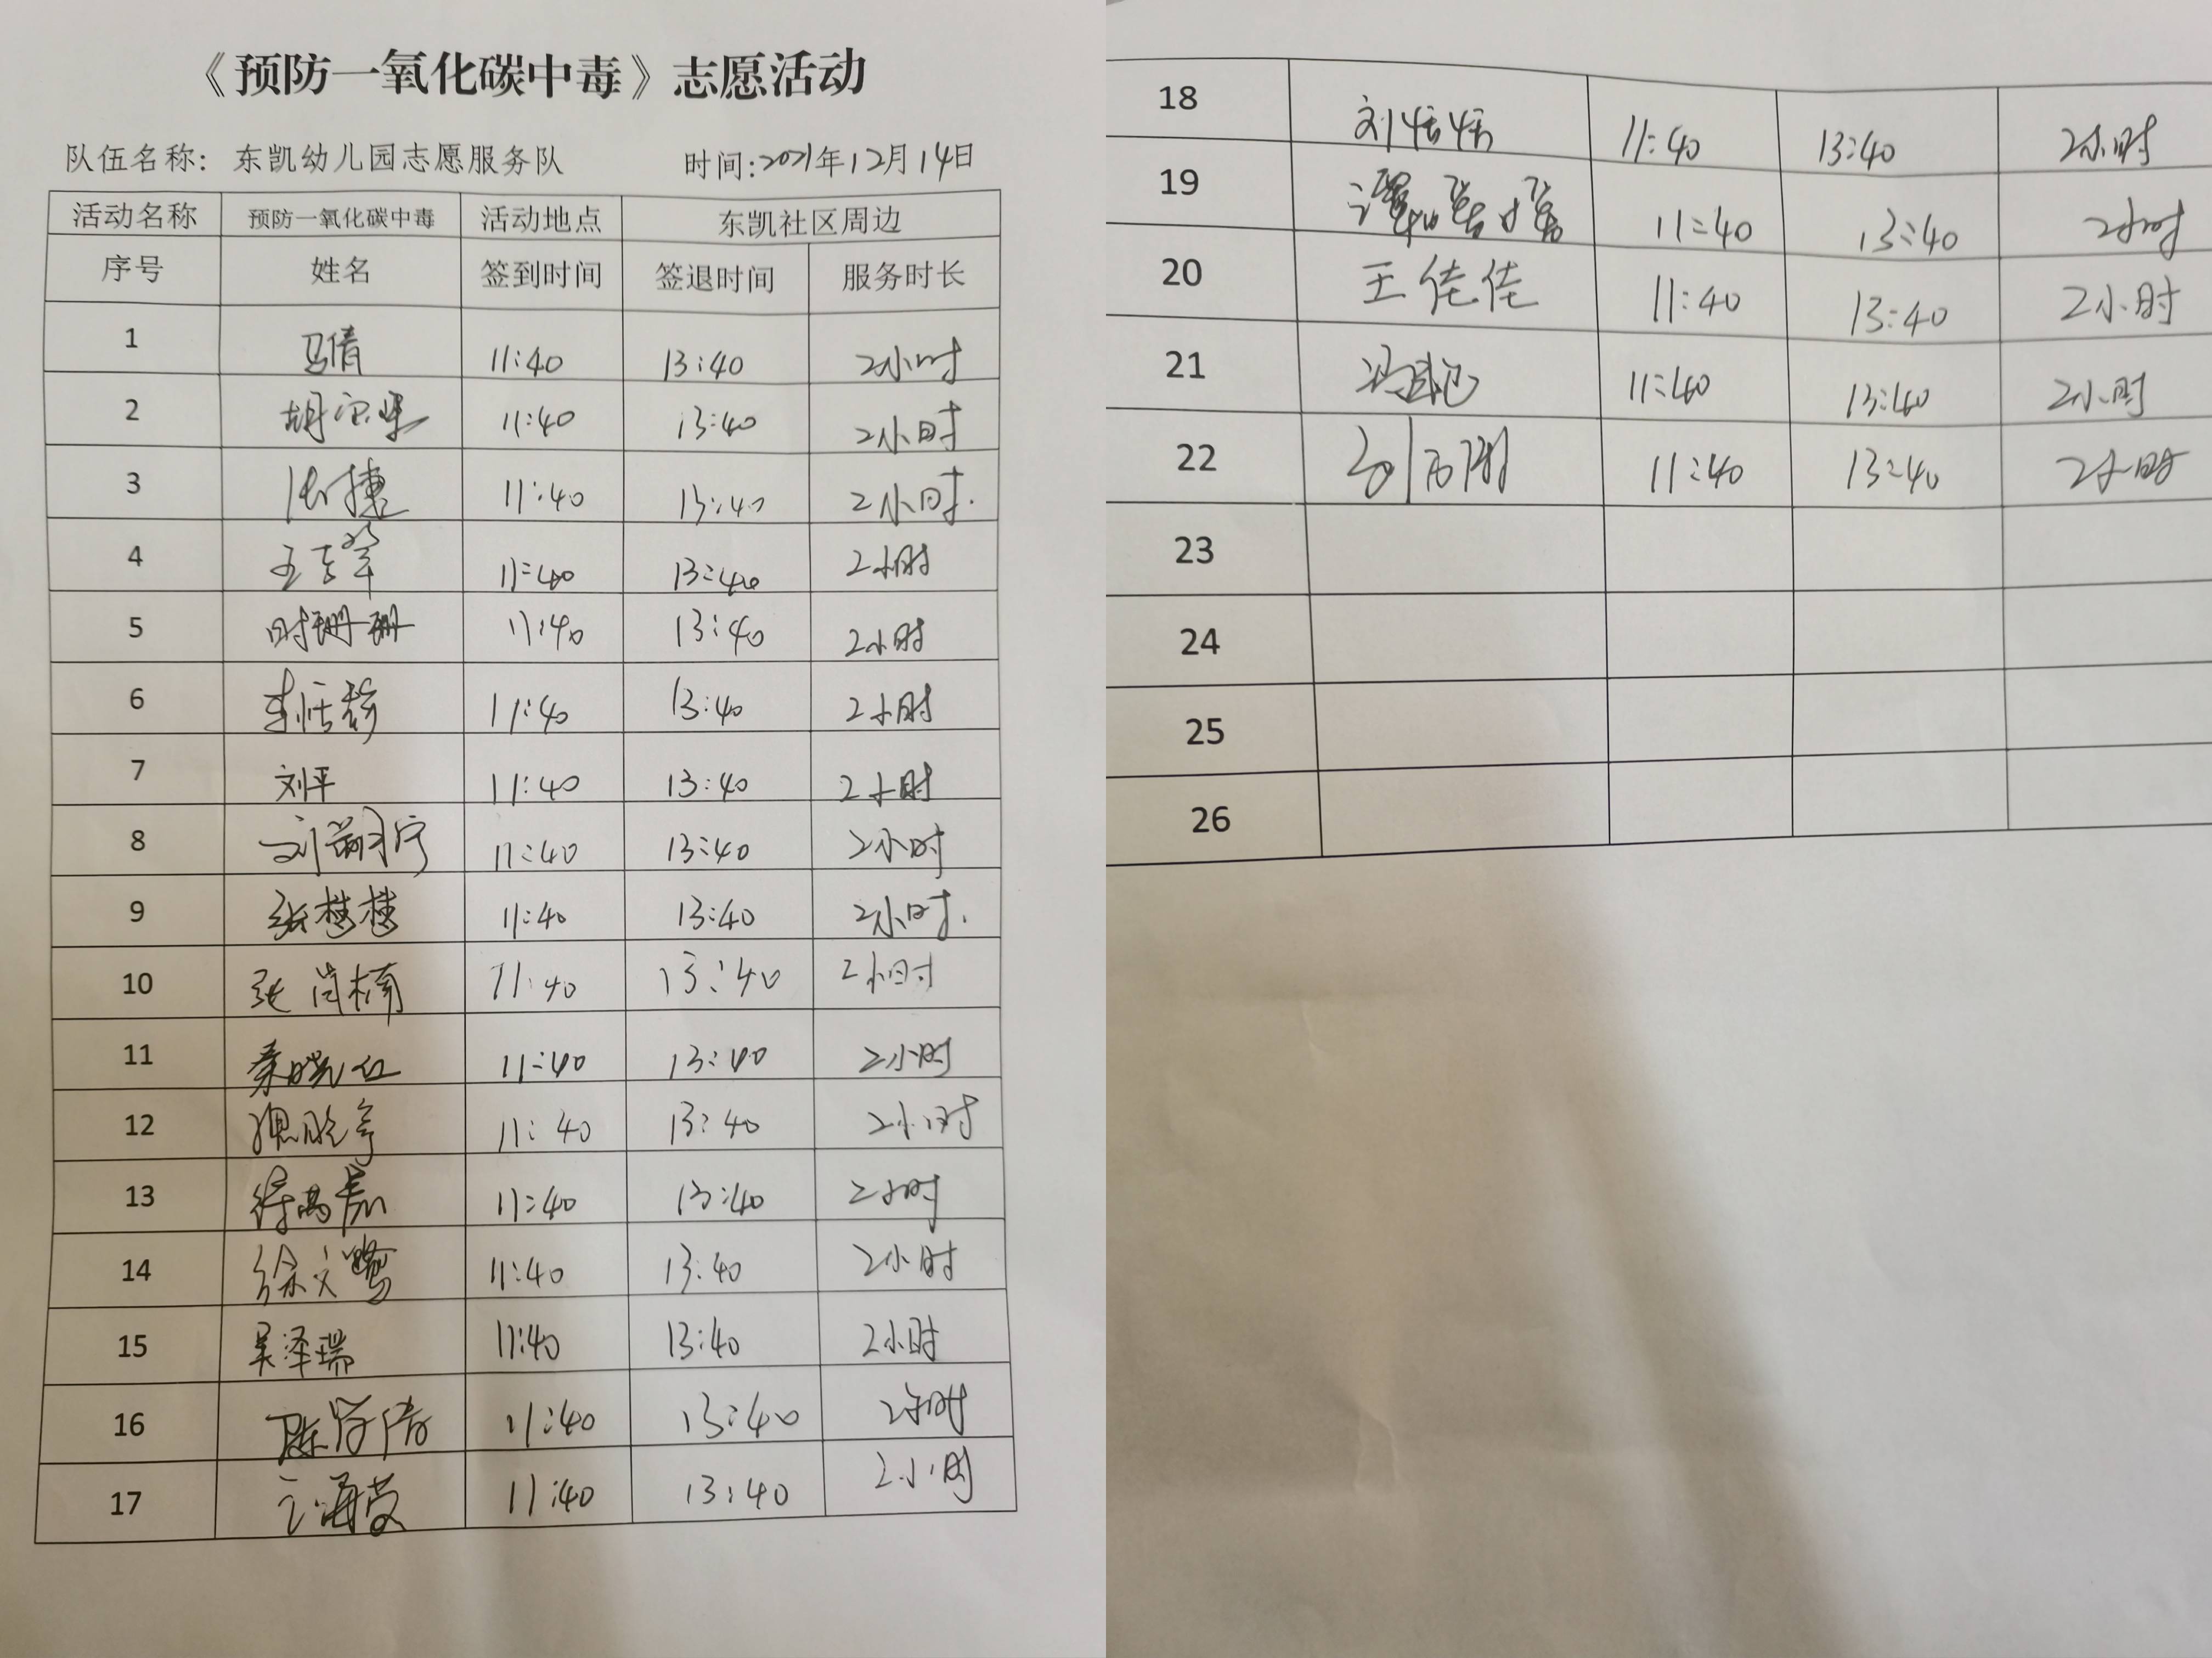 《预防一氧化碳中毒》志愿活动
队伍名称：东凯幼儿园志愿服务队 时间:2021年12月14日
活动名称 预防一氧化碳中毒 活动地点 东凯社区周边
序号 姓名 签到时间 签退时间 服务时长
1 马倩 11:40 13:40 2小时
2 11:40 13:40 2小时
3 11:40 13:40 2小时.
4 11:40 13:40 2小时
5 时珊珊 11:40 13:40 2小时
6 11:40 13:40 2小时
7 刘平 11:40 13:40 2小时
8 11:40 13:40 2小时
9 张楼楼 11:40 13:40 2小时.
10 张肖楠 11:40 13:40 2小时
11 秦晓红 11:40 13:40 2小时
12 11:40 13:40 2小时
13 11:40 13:40 2小时
14 徐文鹭 11:40 13:40 2小时
15 吴泽瑞 11:40 13:40 2小时
16 11:40 13:40 2小时
17 11:40 13:40 2小时
18 11:40 13:40 2小时
19 11:40 13:40 2小时
20 王佳佳 11:40 13:40 2小时
21 11:40 13:40 2小时
22 11:40 13:40 2小时
23
24
25
26